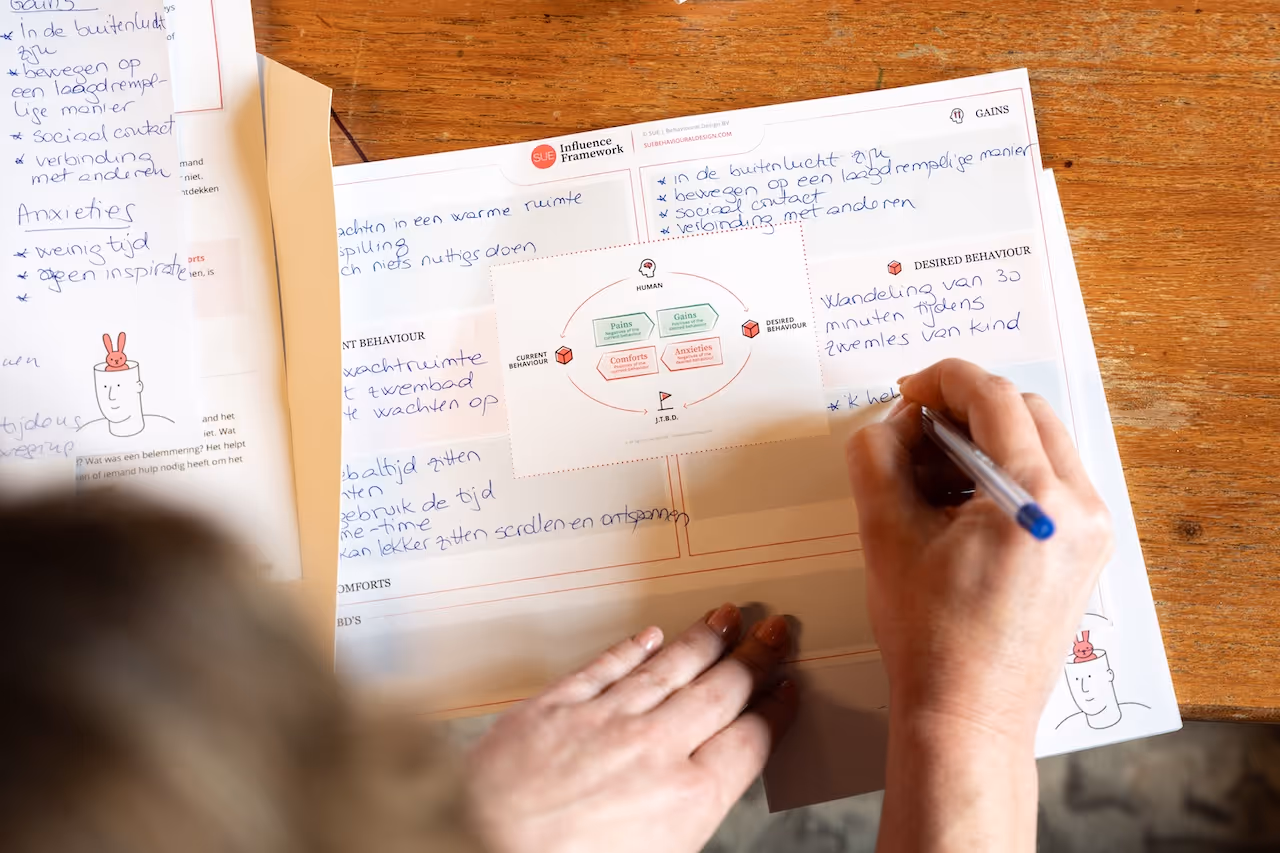 Gains
* in de buitenlucht
zijn
* bewegen op
een laagdrempe-
lige manier
* sociaal contact
* verbinding
met anderen
Anxieties
* weinig tijd
* geen inspiratie
*
tijdens
ys
of
mand
niet.
ntdekken
orts
en, is
and het
iet. Wat
? Wat was een belemmering? Het helpt
en of iemand hulp nodig heeft om het
SUE
Influence
Framework
© SUE | Behavioural Design BV
SUEBEHAVIOURALDESIGN.COM
GAINS
achten in een warme ruimte
spilling
ch niets nuttigs doen
* in de buitenlucht zijn
* bewegen op een laagdrempelige manier
* sociaal contact
* verbinding met anderen
NT BEHAVIOUR
wachtruimte
t zwembad
te wachten op
HUMAN
Pains
Negatives of the
current behaviour
Gains
Positives of the
desired behaviour
CURRENT
BEHAVIOUR
DESIRED
BEHAVIOUR
Comforts
Positives of the
current behaviour
Anxieties
Negatives of the
desired behaviour
J.T.B.D.
DESIRED BEHAVIOUR
Wandeling van 30
minuten tijdens
zwemles van kind
* ik heb
ebaltijd zitten
nten
gebruik de tijd
me-time
kan lekker zitten scrollen en ontspannen
OMFORTS
BD'S